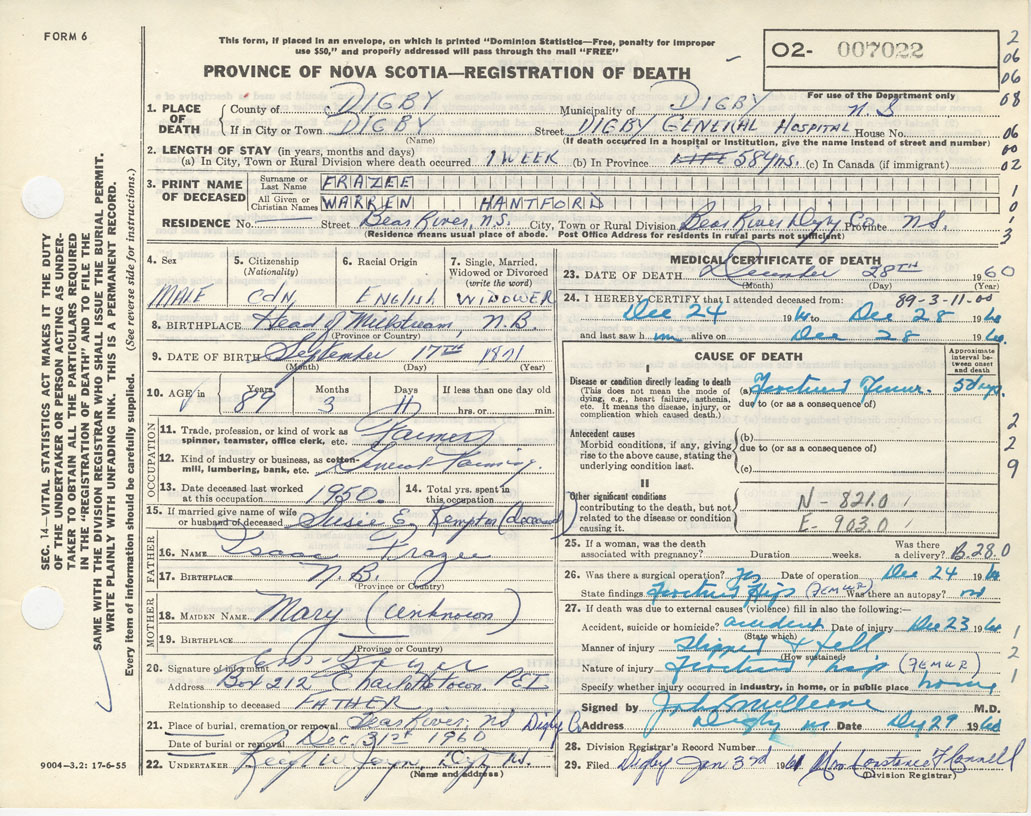 FORM 6
This form, if placed in an envelope, on which is printed "Dominion Statistics—Free, penalty for improper
use $50," and properly addressed will pass through the mail "FREE"
PROVINCE OF NOVA SCOTIA—REGISTRATION OF DEATH
02- 007022
For use of the Department only
2
06
06
08
06
00
02
1
0
1
3
1. PLACE OF DEATH
County of DIGBY Municipality of DIGBY N.S
If in City or Town DIGBY Street DIGBY GENERAL HOSPITAL House No.
(Name) (If death occurred in a hospital or institution, give the name instead of street and number)
2. LENGTH OF STAY (in years, months and days)
(a) In City, Town or Rural Division where death occurred 1 WEEK (b) In Province LIFE 58 yrs. (c) In Canada (if immigrant)
3. PRINT NAME OF DECEASED
Surname or Last Name FRAZEE
All Given or Christian Names WARREN HANTFORD
RESIDENCE No. Street Bear River, N.S. City, Town or Rural Division Bear River Digby Co. Province N.S.
(Residence means usual place of abode. Post Office Address for residents in rural parts not sufficient)
SEC. 14—VITAL STATISTICS ACT MAKES IT THE DUTY
OF THE UNDERTAKER OR PERSON ACTING AS UNDER-
TAKER TO OBTAIN ALL THE PARTICULARS REQUIRED
IN THE "REGISTRATION OF DEATH" AND TO FILE THE
SAME WITH THE DIVISION REGISTRAR WHO SHALL ISSUE THE BURIAL PERMIT.
WRITE PLAINLY WITH UNFADING INK. THIS IS A PERMANENT RECORD.
Every item of information should be carefully supplied. (See reverse side for instructions.)
4. Sex MALE
5. Citizenship (Nationality) CDN
6. Racial Origin ENGLISH
7. Single, Married, Widowed or Divorced (write the word) WIDOWER
8. BIRTHPLACE Head of Millstream, N.B.
(Province or Country)
9. DATE OF BIRTH September 17TH 1871
(Month) (Day) (Year)
10. AGE in Years 89 Months 3 Days 11 If less than one day old hrs. or min.
OCCUPATION
11. Trade, profession, or kind of work as
spinner, teamster, office clerk, etc. Farmer
12. Kind of industry or business, as cotton-
mill, lumbering, bank, etc. General Farming.
13. Date deceased last worked at this occupation 1950.
14. Total yrs. spent in this occupation
15. If married give name of wife
or husband of deceased Susie E. Kempton (deceased)
FATHER
16. NAME Isaac Frazee
17. BIRTHPLACE N.B.
(Province or Country)
MOTHER
18. MAIDEN NAME Mary (Unknown)
19. BIRTHPLACE
(Province or Country)
20. Signature of informant
Address Box 212 Charlottetown PEI
Relationship to deceased FATHER
21. Place of burial, cremation or removal Bear River, NS Digby Co.
Date of burial or removal Dec. 31st 1960
22. UNDERTAKER
(Name and address)
9004—3.2: 17-6-55
MEDICAL CERTIFICATE OF DEATH
23. DATE OF DEATH December 28TH 1960
(Month) (Day) (Year)
89-3-11-00
24. I HEREBY CERTIFY that I attended deceased from:
Dec 24 1960 to Dec 28 1960
and last saw him alive on Dec 28 1960.
CAUSE OF DEATH
Approximate interval between onset and death
I
Disease or condition directly leading to death (a) Fractured Femur. 5 days
(This does not mean the mode of dying, e.g., heart failure, asthenia, etc. It means the disease, injury, or complication which caused death.)
due to (or as a consequence of)
Antecedent causes
Morbid conditions, if any, giving rise to the above cause, stating the underlying condition last.
(b)
due to (or as a consequence of)
(c)
2
2
9
II
Other significant conditions
contributing to the death, but not related to the disease or condition causing it.
N- 821.0
E- 903.0
25. If a woman, was the death associated with pregnancy? Duration weeks. Was there a delivery? B.28.0
26. Was there a surgical operation? Yes Date of operation Dec 24 1960
State findings Fractured Hip (FEMUR) Was there an autopsy? no
27. If death was due to external causes (violence) fill in also the following:—
Accident, suicide or homicide? accident Date of injury Dec 23 1960
(State which)
Manner of injury Slipped & fell
(How sustained)
Nature of injury Fractured hip (FEMUR)
Specify whether injury occurred in industry, in home, or in public place home
1
2
1
Signed by M.D.
Address Digby NS Date 29 1960
28. Division Registrar's Record Number
29. Filed Digby Jan 3rd 1961 Mrs Constance F Connell
(Division Registrar)